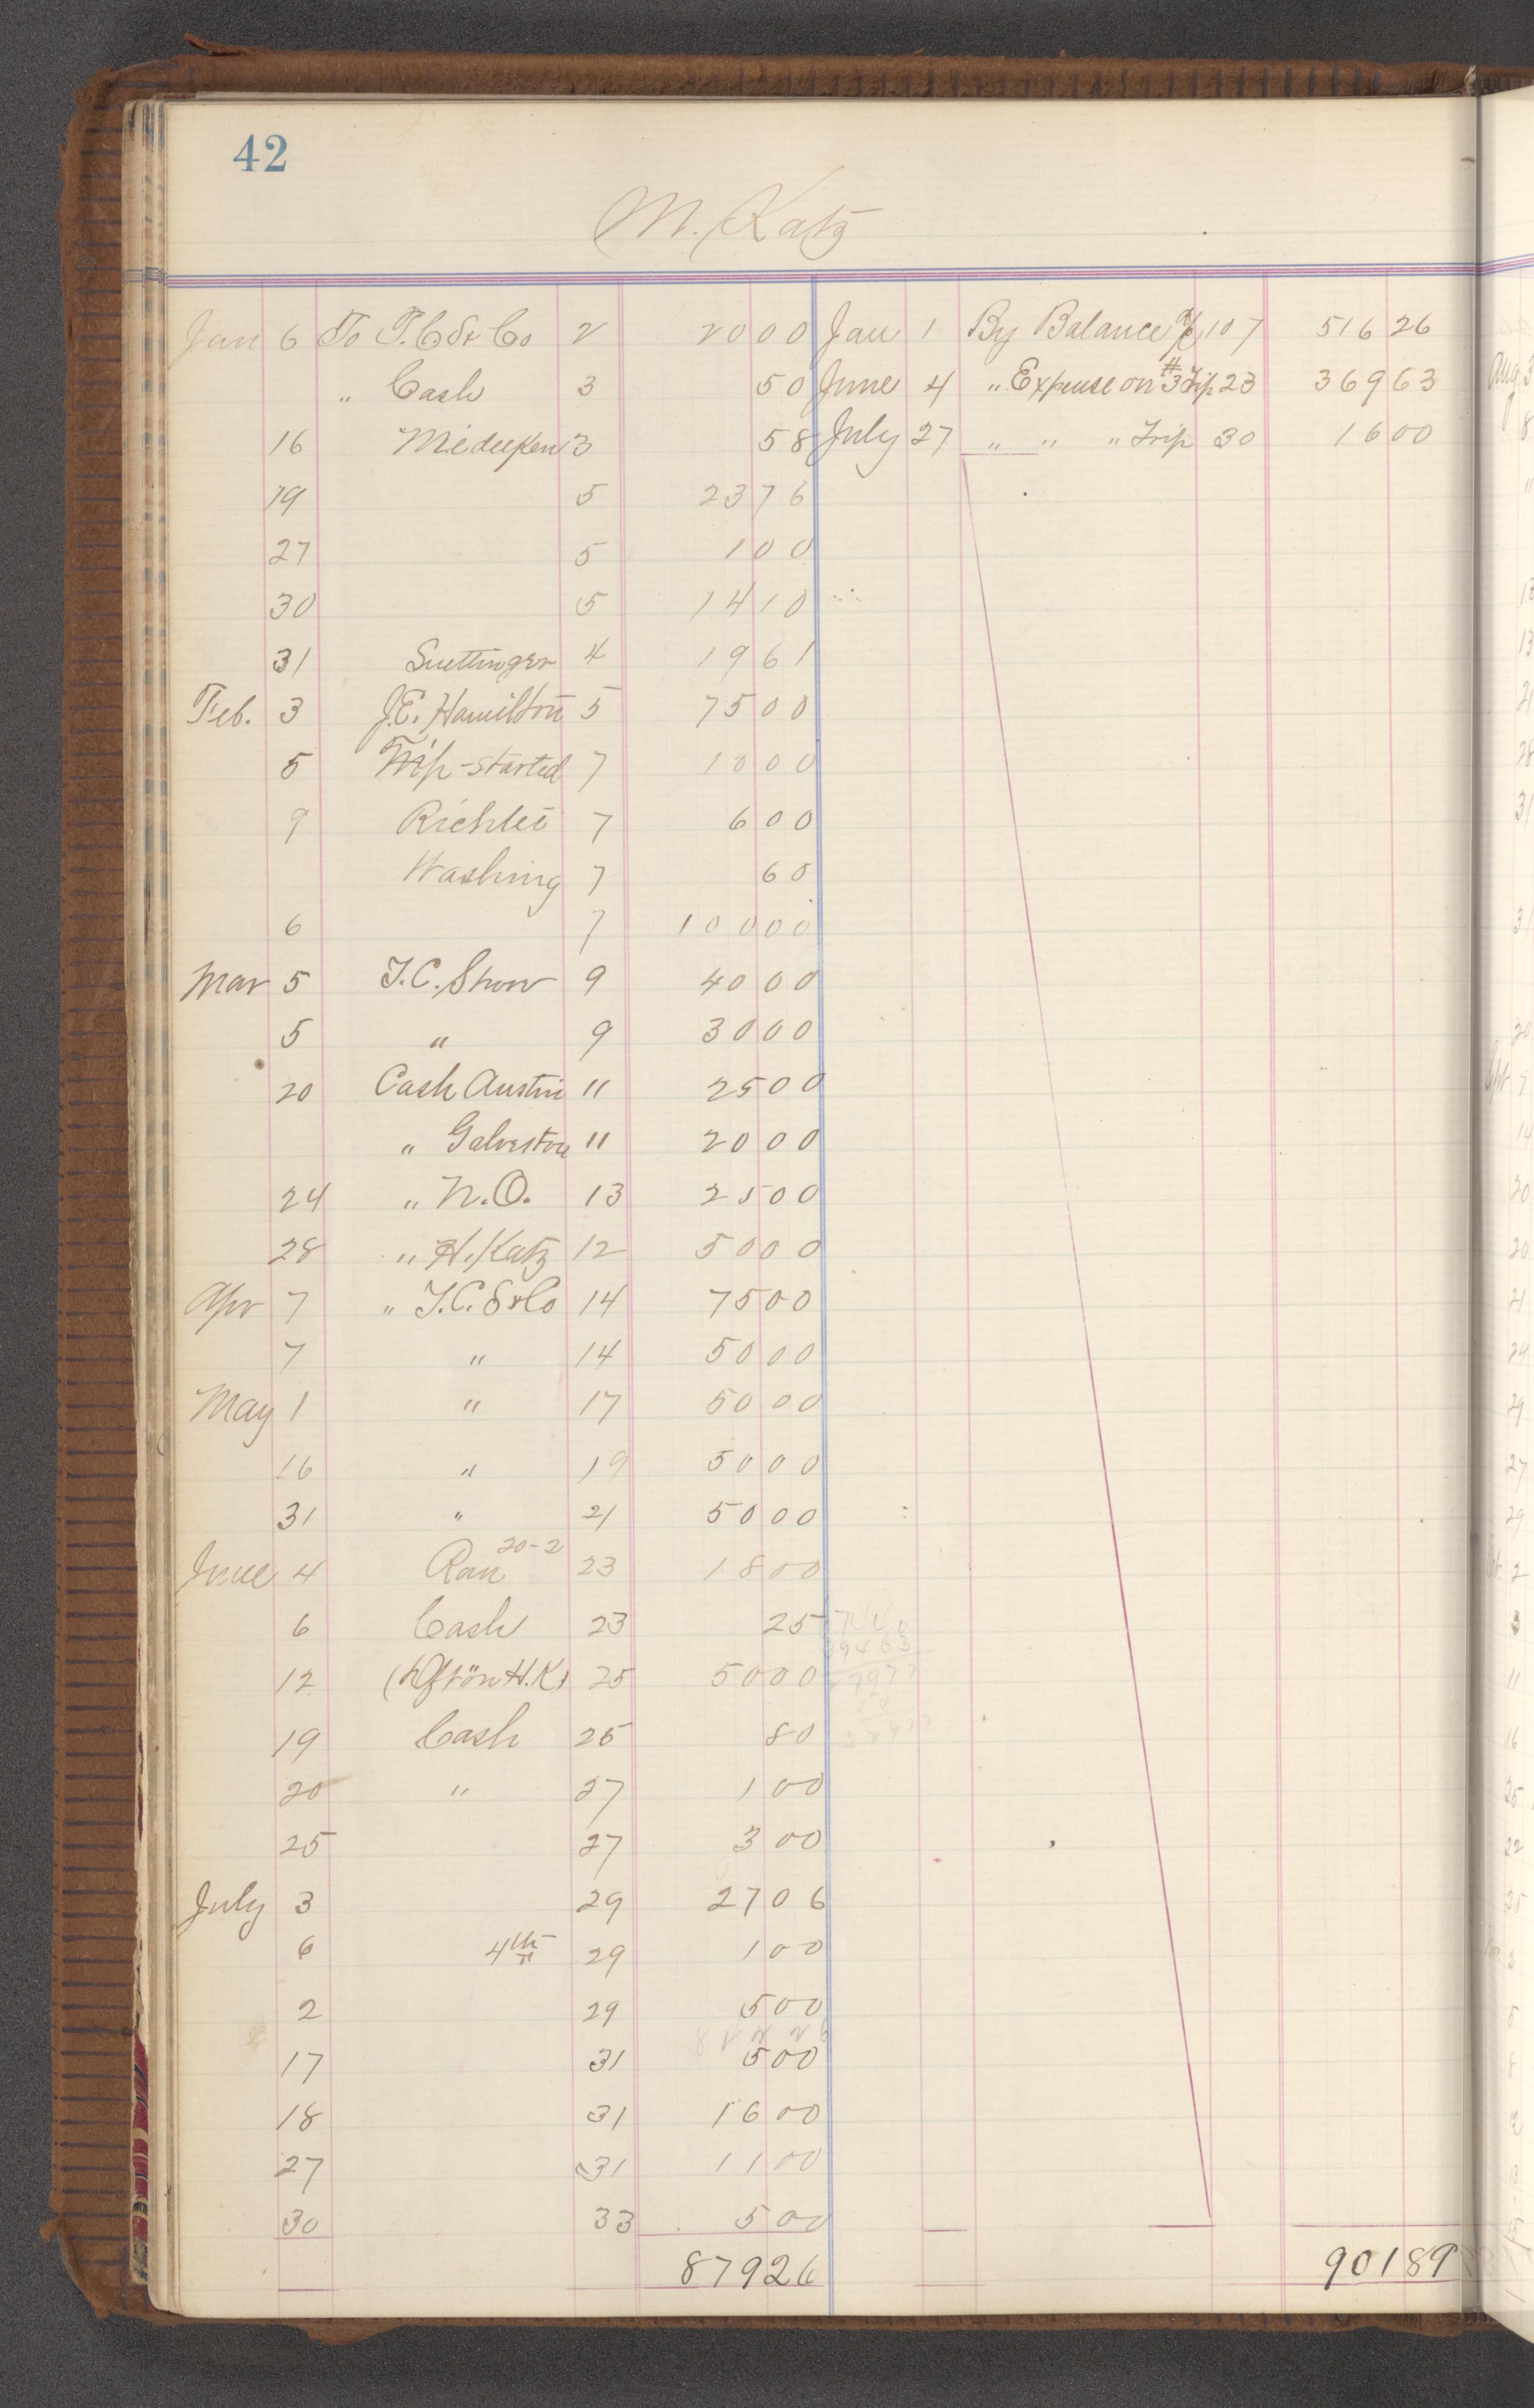 42
M. Katz
Jan 6 To T. C. S & Co 2 20 00 Jan 1 By Balance 107 516 26
" Cash 3 50 June 4 " Expense on #3 Trip 23 369 63
16 3 58 July 27 " " " Trip 30 16 00
19 5 23 76
27 5 1 00
30 5 14 10
31 Suettinger 4 19 61
Feb. 3 J.E. Hamilton 5 75 00
5 Trip-started 7 10 00
9 7 6 00
Washing 7 60
6 7 100 00
Mar 5 T.C. Show 9 40 00
5 " 9 30 00
20 Cash Austin 11 25 00
" Galveston 11 20 00
24 " N.O. 13 25 00
28 " H. Katz 12 50 00
Apr 7 " T.C. S & Co 14 75 00
7 " 14 50 00
May 1 " 17 50 00
16 " 19 50 00
31 " 21 50 00
June 4 20-2 23 18 00
6 Cash 23 25
12 H.K. 25 50 00
19 Cash 25 80
20 " 27 1 00
25 27 3 00
July 3 29 27 06
6 4th 29 1 00
2 29 5 00
17 31 5 00
18 31 16 00
27 31 11 00
30 33 5 00
879 26 901 89